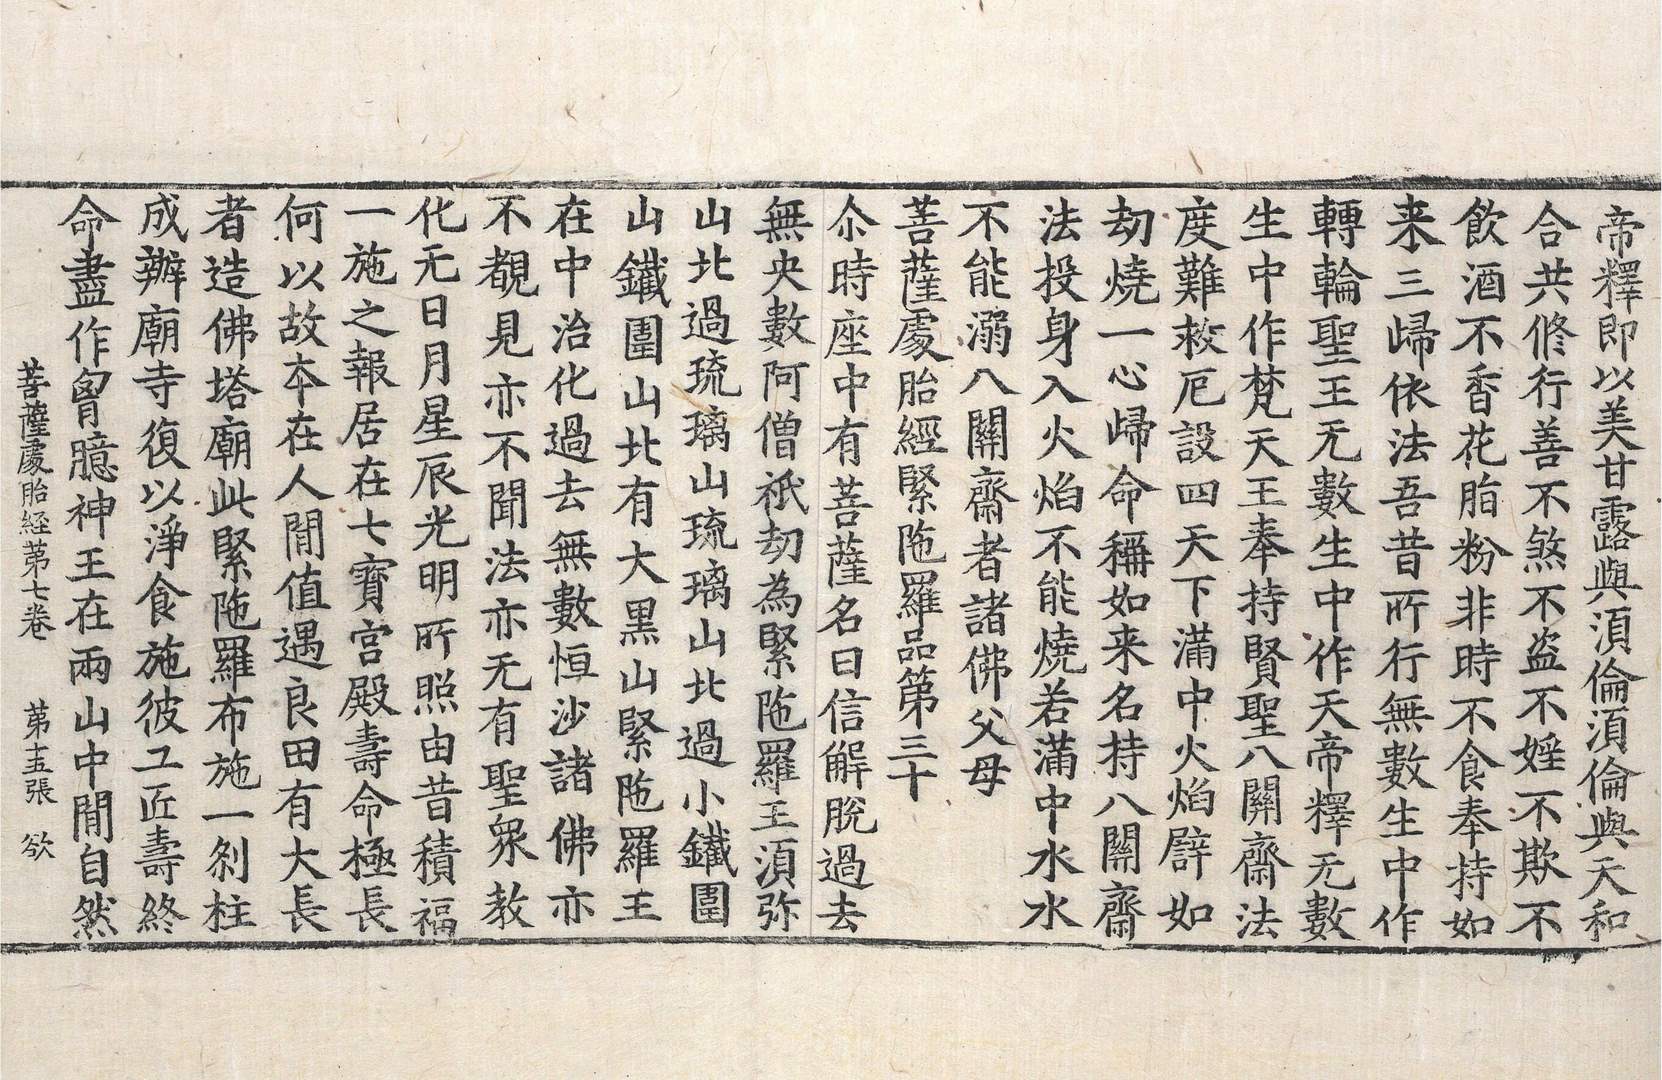 帝釋即以美甘露與湏倫湏倫與天和
合共修行善不煞不盗不婬不欺不
飲酒不香花脂粉非時不食奉持如
来三歸依法吾昔所行無數生中作
轉輪聖王无數生中作天帝釋无數
生中作梵天王奉持賢聖八關齋法
度難救厄設四天下滿中火焰劈如
劫燒一心歸命稱如来名持八關齋
法投身入火焰不能燒若滿中水水
不能溺八關齋者諸佛父母
菩薩處胎經緊陁羅品第三十
尒時座中有菩薩名曰信解脫過去
無央數阿僧祇劫為緊陁羅王湏弥
山北過琉璃山琉璃山北過小鐵圍
山鐵圍山北有大黒山緊陁羅王
在中治化過去無數恒沙諸佛亦
不覩見亦不聞法亦无有聖衆教
化无日月星辰光明所照由昔積福
一施之報居在七寳宮殿壽命極長
何以故本在人閒值遇良田有大長
者造佛塔廟此緊陁羅布施一刹柱
成辦廟寺復以淨食施彼工匠壽終
命盡作胷臆神王在兩山中閒自然
菩薩處胎経苐七卷 苐十五張 欲